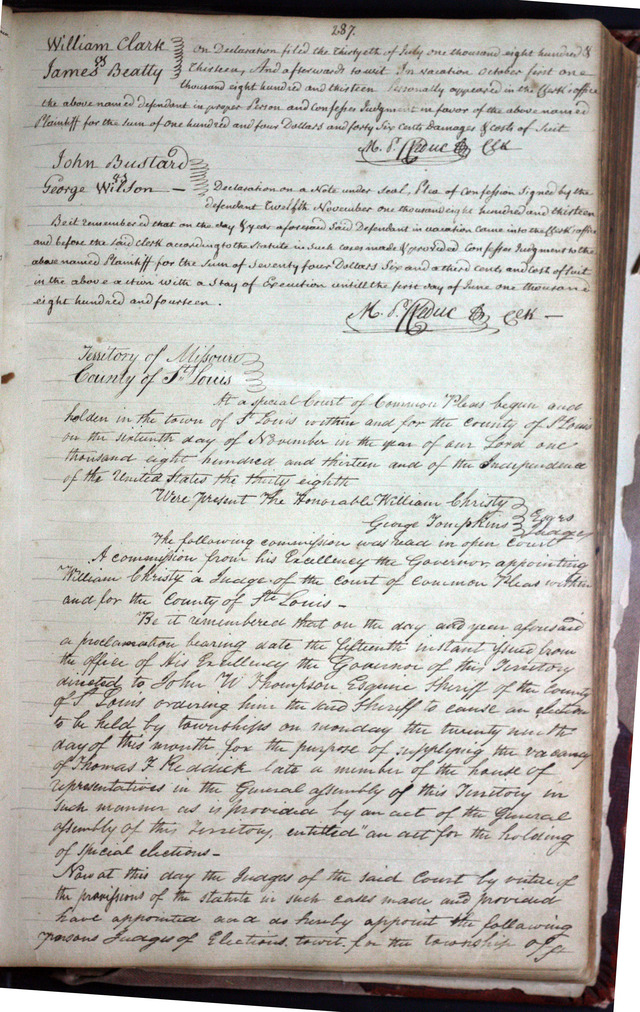 187.
William Clark
vs
James Beatty
On Declaration filed the Thirtyeth of July one thousand eight hundred &
Thirteen, And afterwards to wit In vacation October first one
thousand eight hundred and thirteen Personally appeared in the Clerk's office
the above named defendant in proper Person and Confesses Judgment in favor of the above named
Plaintiff for the sum of one hundred and four Dollars and forty Six Cents Damages & costs of Suit
M. P. Leduc Clk
John Bustard
vs
George Wilson —
Declaration on a Note under Seal, Plea of Confession Signed by the
defendant Twelfth November one thousand eight hundred and thirteen
Be it remembered that on the day & year aforesaid Said Defendant in vacation came into the Clerk's office
and before the Said Clerk according to the Statute in Such cases made & provided Confesses Judgment to the
above named Plaintiff for the Sum of Seventy four Dollars Six and a third Cents and Cost of Suit
in the above action with a Stay of Execution untill the first day of June one thousand
eight hundred and fourteen .
M. P. Leduc Clk —
Territory of Missouri
County of St Louis
At a special Court of Common Pleas begun and
holden in the town of St Louis within and for the County of St Louis
on the sixteenth day of November in the year of our Lord one
thousand eight hundred and thirteen and of the Independence
of the United States the thirty eighth
Were Present The Honorable William Christy
George Tompkins
Esqrs
Judges
The following commission was read in open Court
A commission from his Excellency the Governor appointing
William Christy a Judge of the court of Common Pleas within
and for the County of Ste Louis —
Be it remembered that on the day and year aforesaid
a proclamation bearing date the fifteenth instant issued from
the office of His Excellency the Governor of this Territory
directed to John W Thompson Esquire Sheriff of the County
of St Louis ordering him the said Sheriff to cause an election
to be held by townships on monday the twenty ninth
day of this month for the purpose of supplying the vacancy
of Thomas F Reddick late a member of the house of
representatives in the General assembly of this Territory in
Such manner as is provided by an act of the General
assembly of this Territory, entitled "an act for the holding
of special elections —
Now at this day the Judges of the said Court by virtue of
the provisions of the statute in such cases made and provided
have appointed and do hereby appoint the following
persons Judges of Elections. towit, for the township of St